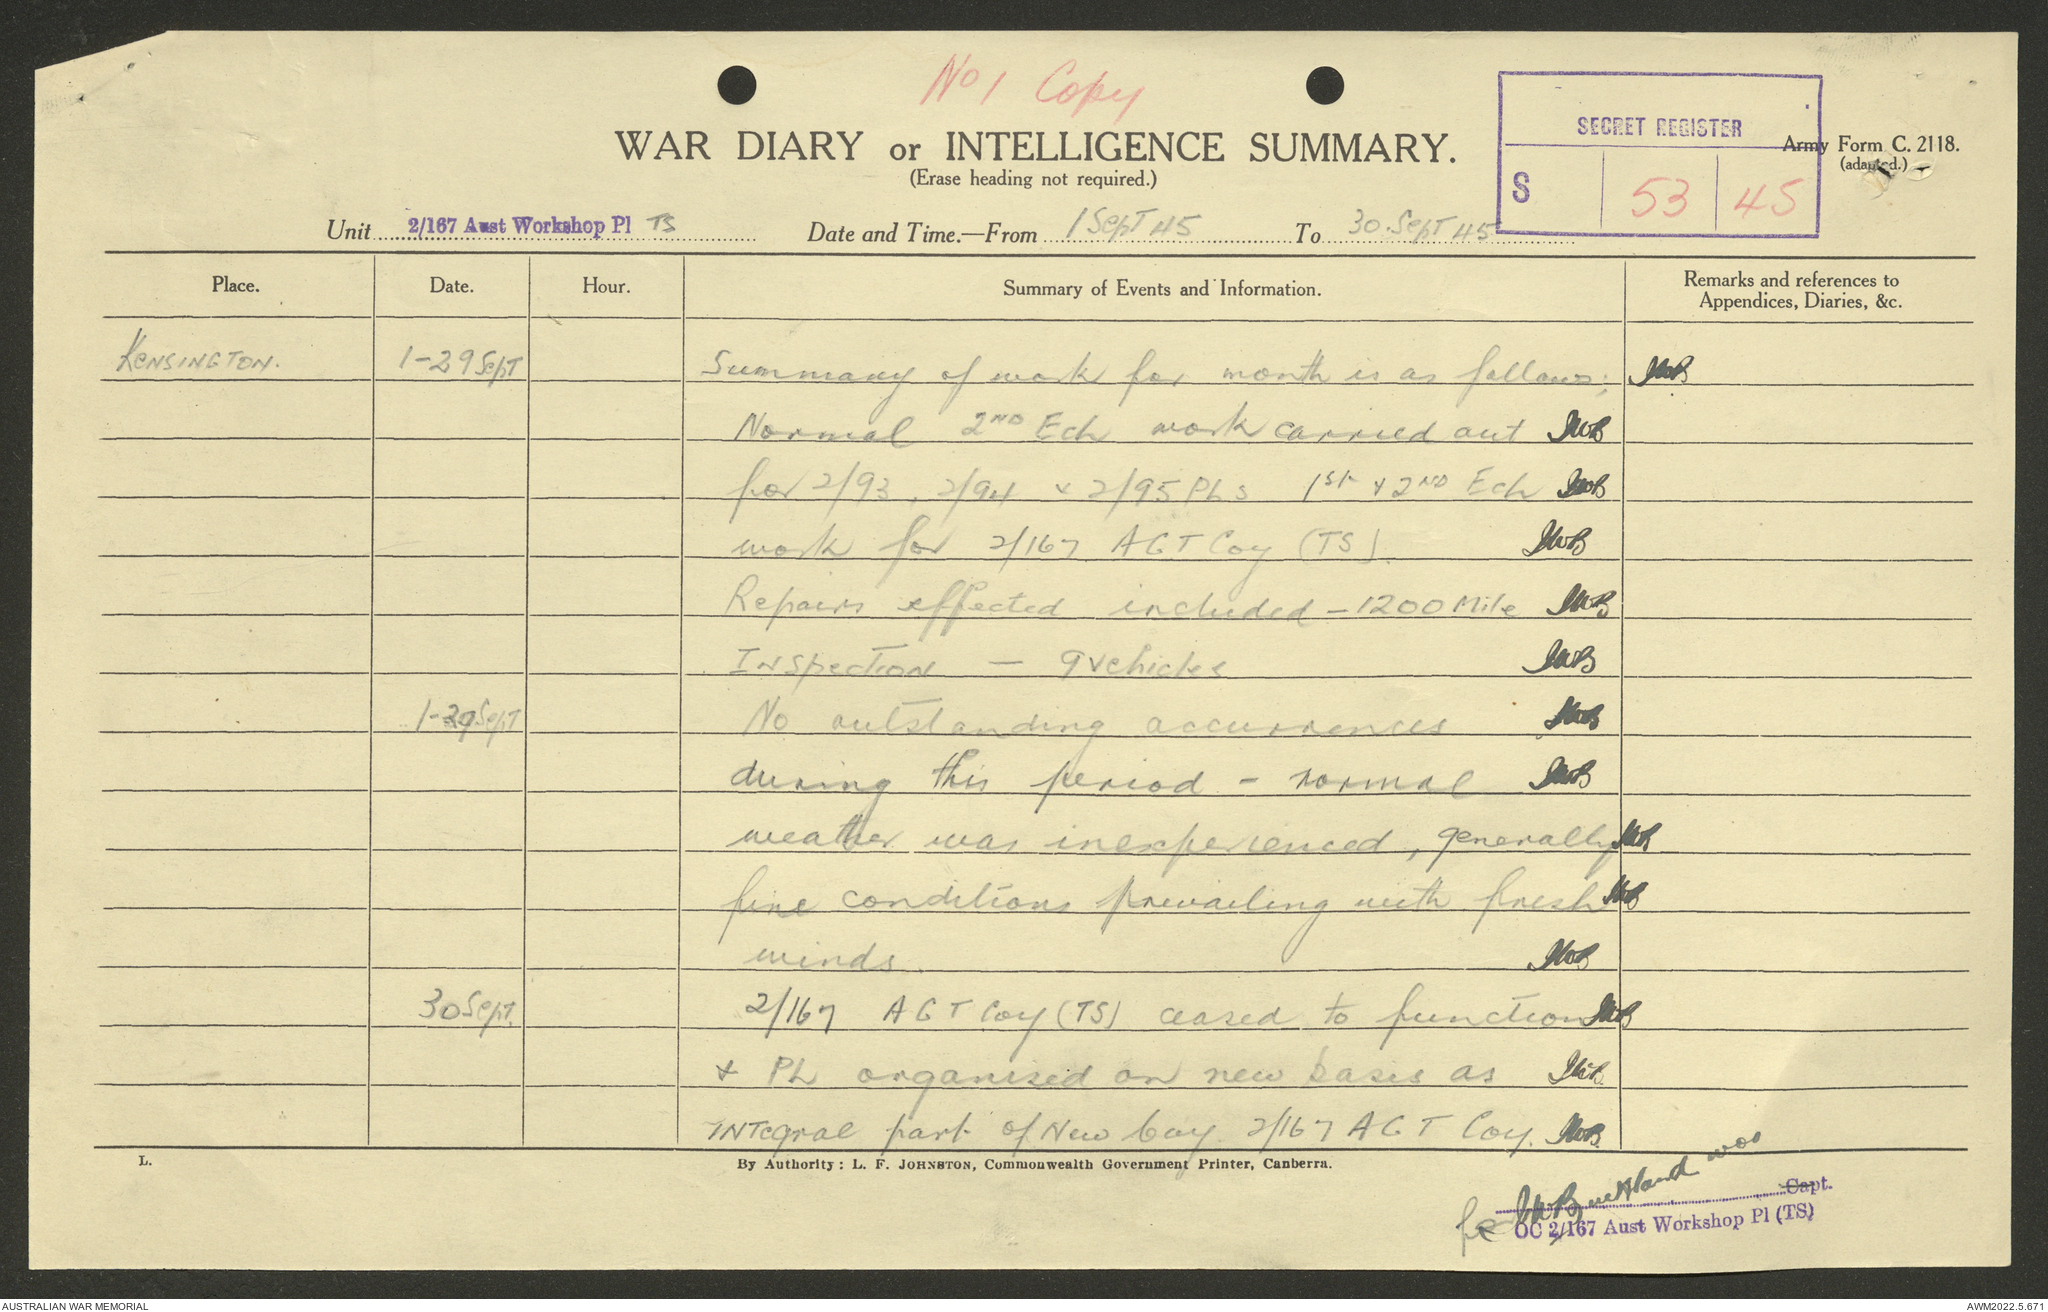 No 1 Copy
WAR DIARY or INTELLIGENCE SUMMARY.
(Erase heading not required.)
SECRET REGISTER
S 53 45
Army Form C. 2118.
(adapted.)
Unit 2/167 Aust Workshop Pl TS Date and Time.—From 1 Sept 45 To 30 Sept 45
Place. Date. Hour. Summary of Events and Information. Remarks and references to Appendices, Diaries, &c.
KENSINGTON. 1-29 Sept Summary of work for month is as follows; JWB
Normal 2ND Ech work carried out JWB
for 2/93, 2/94 & 2/95 PLs 1st & 2ND Ech JWB
work for 2/167 AGT Coy (TS). JWB
Repairs effected included - 1200 Mile JWB
Inspection — 9 vehicles JWB
1-29 Sept No outstanding occurrences JWB
during this period - normal JWB
weather was inexperienced, generally JWB
fine conditions prevailing with fresh JWB
winds. JWB
30 Sept. 2/167 AGT Coy (TS) ceased to function JWB
& PL organised on new basis as JWB
INTegral part of New Coy 2/167 AGT Coy. JWB
L. By Authority: L. F. JOHNSTON, Commonwealth Government Printer, Canberra.
for JWBuckland WO2
Capt.
OC 2/167 Aust Workshop Pl (TS)
AUSTRALIAN WAR MEMORIAL AWM2022.5.671